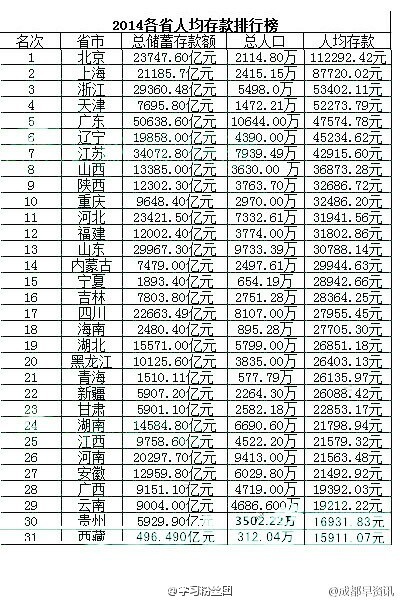 2014各省人均存款排行榜
名次 省市 总储蓄存款额 总人口 人均存款
1 北京 23747.60亿元 2114.80万 112292.42元
2 上海 21185.7亿元 2415.15万 87720.02元
3 浙江 29360.48亿元 5498.0万 53402.11元
4 天津 7695.80亿元 1472.21万 52273.79元
5 广东 50638.60亿元 10644.00万 47574.78元
6 辽宁 19858.00亿元 4390.00万 45234.62元
7 江苏 34072.80亿元 7939.49万 42915.60元
8 山西 13385.00亿元 3630.00 万 36873.28元
9 陕西 12302.30亿元 3763.70万 32686.72元
10 重庆 9648.40亿元 2970.00万 32486.20元
11 河北 23421.50亿元 7332.61万 31941.56元
12 福建 12002.40亿元 3774.00万 31802.86元
13 山东 29967.30亿元 9733.39万 30788.14元
14 内蒙古 7479.00亿元 2497.61万 29944.63元
15 宁夏 1893.40亿元 654.19万 28942.66元
16 吉林 7803.80亿元 2751.28万 28364.25元
17 四川 22663.49亿元 8107.00万 27955.45元
18 海南 2480.40亿元 895.28万 27705.30元
19 湖北 15571.00亿元 5799.00万 26851.18元
20 黑龙江 10125.60亿元 3835.00万 26403.13元
21 青海 1510.11亿元 577.79万 26135.97元
22 新疆 5907.20亿元 2264.30万 26088.42元
23 甘肃 5901.10亿元 2582.18万 22853.17元
24 湖南 14584.80亿元 6690.60万 21798.94元
25 江西 9758.60亿元 4522.20万 21579.32元
26 河南 20297.70亿元 9413.00万 21563.48元
27 安徽 12959.80亿元 6029.80万 21492.92元
28 广西 9151.10亿元 4719.00万 19392.03元
29 云南 9004.00亿元 4686.600万 19212.22元
30 贵州 5929.90亿元 3502.22万 16931.83元
31 西藏 496.490亿元 312.04万 15911.07元
@学习粉丝团
@成都早资讯